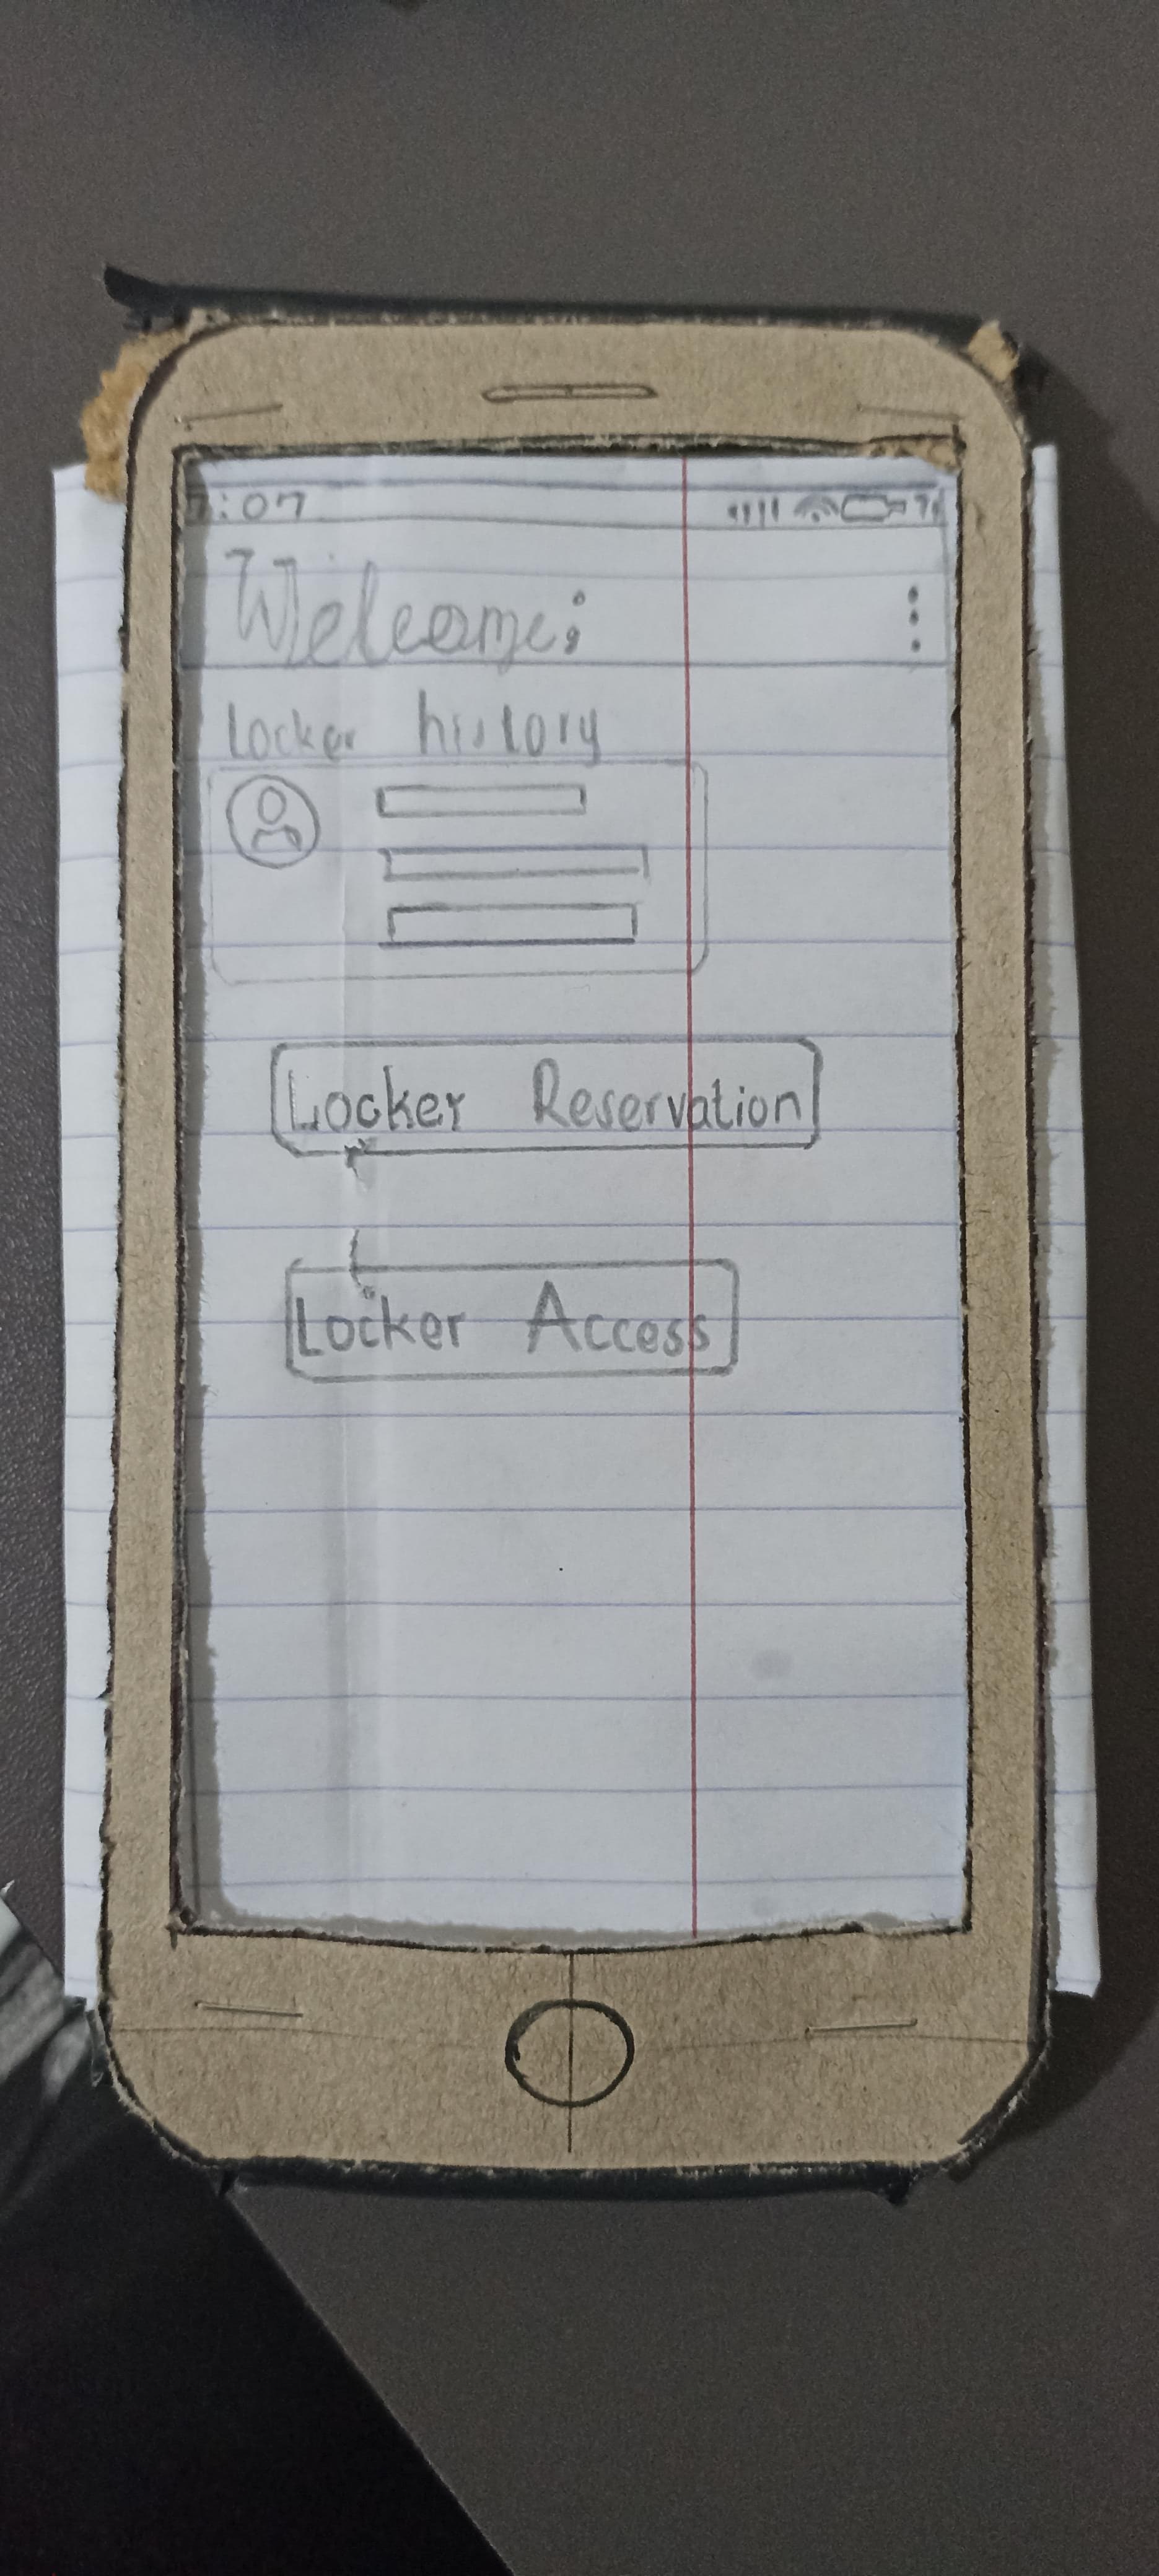 :07
Welcome:
Locker history
Locker Reservation
Locker Access